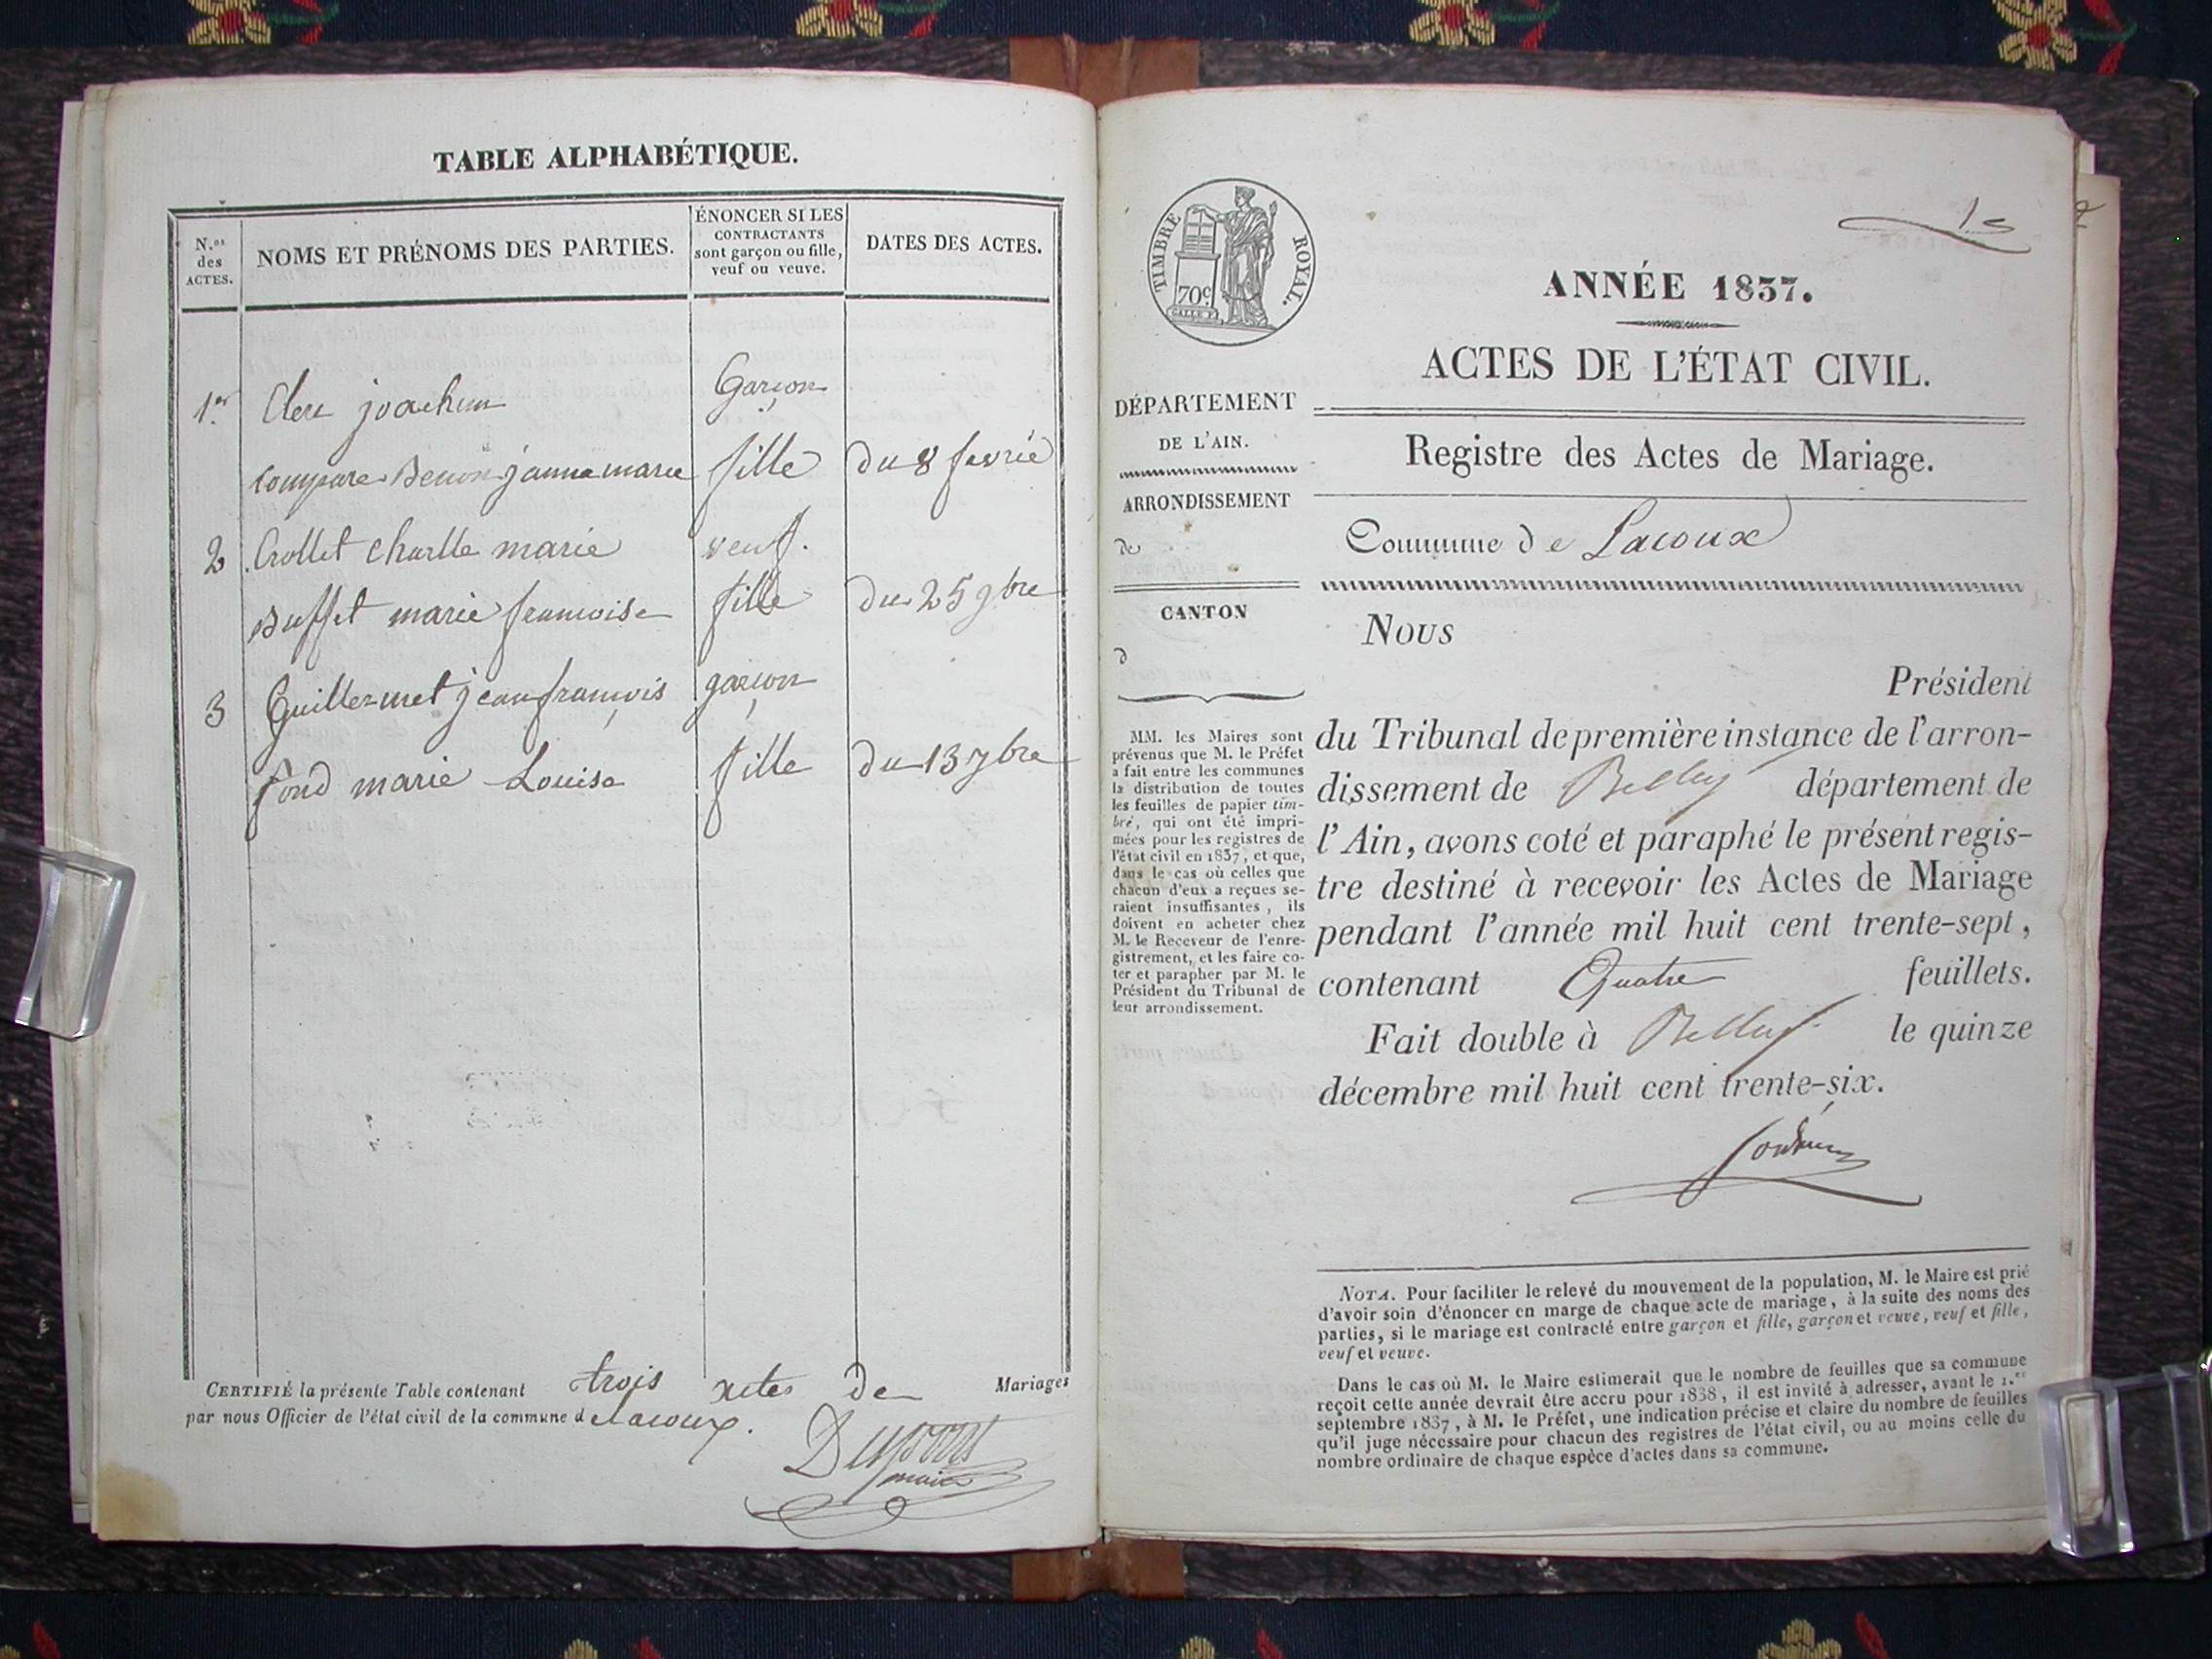 TABLE ALPHABÉTIQUE.
N.os des ACTES.
NOMS ET PRÉNOMS DES PARTIES.
ÉNONCER SI LES
CONTRACTANTS
sont garçon ou fille,
veuf ou veuve.
DATES DES ACTES.
1er Clerc joachim Garçon
compare Benon janne marie fille du 8 fevrié
2 Crollet charlle marie veuf.
Buffet marie francoise fille du 25 9bre
3 Guillermet jean françois garçon
fond marie Louise fille du 13 7bre
CERTIFIÉ la présente Table contenant trois actes de Mariages
par nous Officier de l'état civil de la commune de Lacoux.
maire
1er
TIMBRE ROYAL.
70c.
ANNÉE 1837.
ACTES DE L'ÉTAT CIVIL.
DÉPARTEMENT
DE L'AIN.
Registre des Actes de Mariage.
ARRONDISSEMENT
de
Commune de Lacoux
CANTON
d
MM. les Maires sont
prévenus que M. le Préfet
a fait entre les communes
la distribution de toutes
les feuilles de papier tim-
bré, qui ont été impri-
mées pour les registres de
l'état civil en 1837, et que,
dans le cas où celles que
chacun d'eux a reçues se-
raient insuffisantes, ils
doivent en acheter chez
M. le Receveur de l'enre-
gistrement, et les faire co-
ter et parapher par M. le
Président du Tribunal de
leur arrondissement.
NOUS
Président
du Tribunal de première instance de l'arron-
dissement de Belley département de
l'Ain, avons coté et paraphé le présent regis-
tre destiné à recevoir les Actes de Mariage
pendant l'année mil huit cent trente-sept,
contenant Quatre feuillets.
Fait double à Belley le quinze
décembre mil huit cent trente-six.
NOTA. Pour faciliter le relevé du mouvement de la population, M. le Maire est prié
d'avoir soin d'énoncer en marge de chaque acte de mariage, à la suite des noms des
parties, si le mariage est contracté entre garçon et fille, garçon et veuve, veuf et fille,
veuf et veuve.
Dans le cas où M. le Maire estimerait que le nombre de feuilles que sa commune
reçoit cette année devrait être accru pour 1838, il est invité à adresser, avant le 1.er
septembre 1837, à M. le Préfet, une indication précise et claire du nombre de feuilles
qu'il juge nécessaire pour chacun des registres de l'état civil, ou au moins celle du
nombre ordinaire de chaque espèce d'actes dans sa commune.